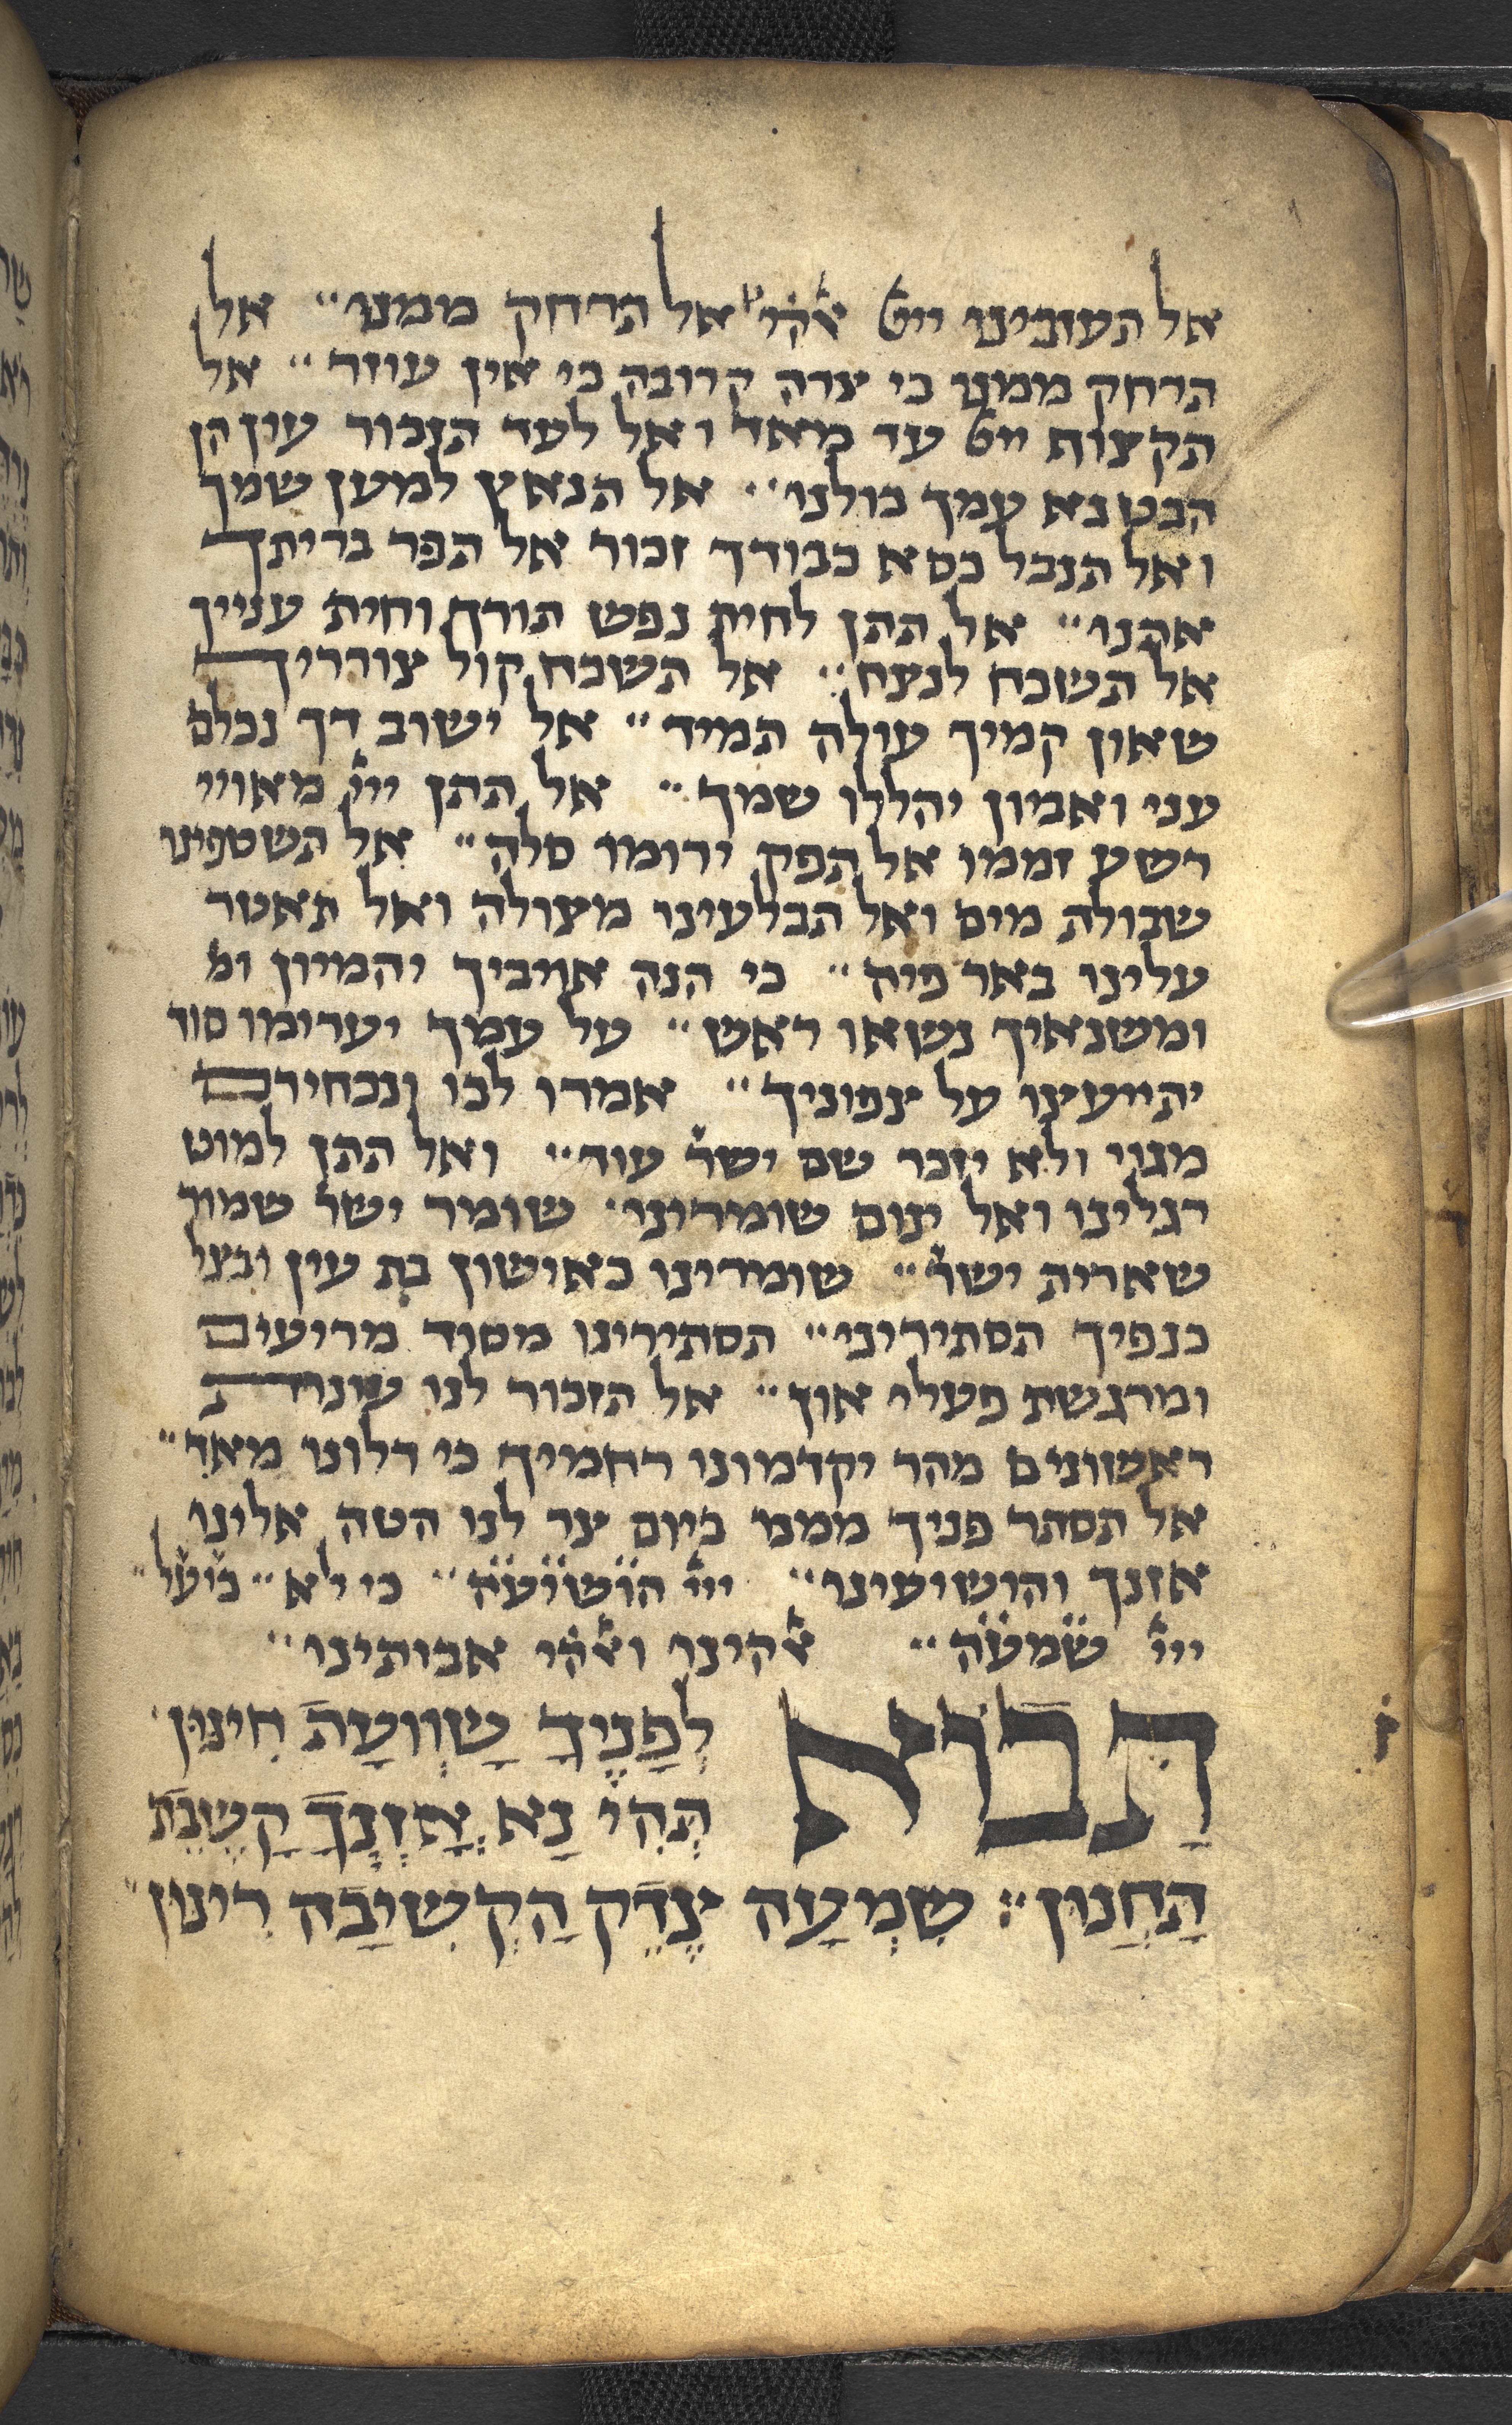 אל תעזבינו ייי אלהי אל תרחק ממנו" אל
תרחק ממנו כי צרה קרובה כי אין עוזר" אל
תקצוף ייי עד מאד ואל לעד תזכור עון הן
הבט נא עמך כולנו" אל תנאץ למען שמך
ואל תנבל כסא כבודך זכור אל תפר בריתך
אתנו" אל תתן לחית נפש תורך וחית ענייך
אל תשכח לנצח" אל תשכח קול צורריך
שאון קמיך עולה תמיד" אל ישוב דך נכלם
עני ואביון יהללו שמך" אל תתן ייי מאויי
רשע זממו אל תפק ירומו סלה" אל תשטפינו
שבולת מים ואל תבלעינו מצולה ואל תאטר
עלינו באר פיה" כי הנה אויביך יהמיון ומ
ומשנאיך נשאו ראש" על עמך יערימו סוד
יתייעצו על צפוניך" אמרו לכו ונכחידם
מגוי ולא יזכר שם ישר עוד" ואל תתן למוט
רגלינו ואל ינום שומרינו שומר ישר שמור
שארית ישר" שומרינו כאישון בת עין ובצל
כנפיך תסתירינו" תסתירינו מסוד מריעים
ומרגשת פעלי און" אל תזכור לנו עונות
ראשונים מהר יקדמונו רחמיך כי דלונו מאד"
אל תסתר פניך ממנו ביום צר לנו הטה אלינו
אזנך והושיעינו" ייי הושיעה" כי לא" כי על"
ייי שמעה" אלהינו ואלהי אבותינו"
תָבֹוא לְפָנֶיךָ שָׁוְועַת חִינּוּן
תְּהִי נָא אָזְנְךָ קַשֶּׁבֶת
תַּחֲנוּן" שִׁמְעָה צֶדֶק הַקְשִׁיבָה רִינּוּן"